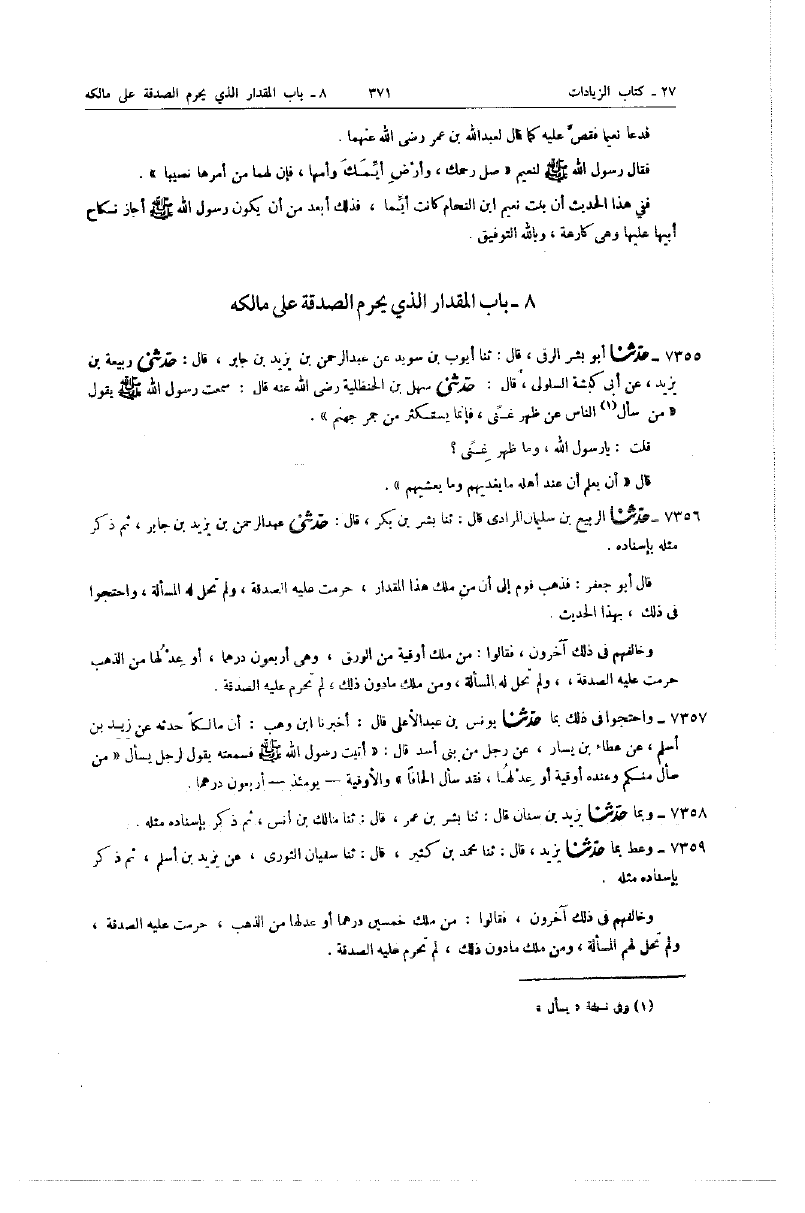 ٢٧ - كتاب الزيادات ٣٧١ ٨ - باب المقدار الذي يحرم الصدقة على مالكه
فدعا نعيما فقصّ عليه كما قال لعبدالله بن عمر رضى الله عنهما .
فقال رسول الله ﷺ لنعيم « صل رحمك ، وأرْضِ أيِّمَكَ وأمها ، فإن لهما من أمرها نصيبا » .
ففى هذا الحديث أن بنت نعيم ابن النحام كانت أيِّما ، فذلك أبعد من أن يكون رسول الله ﷺ أجاز نكاح
أبيها عليها وهى كارهة ، وبالله التوفيق .
٨ - باب المقدار الذي يحرم الصدقة على مالكه
٧٣٥٥ - حَدَّثَنَا أبو بشر الرقى ، قال : ثنا أيوب بن سويد عن عبدالرحمن بن يزيد بن جابر ، قال : حَدَّثَنى ربيعة بن
يزيد ، عن أبى كبشة السلولى ، قال : حَدَّثَنى سهل بن الحنظلية رضى الله عنه قال : سمعت رسول الله ﷺ يقول
« من سأل(١) الناس عن ظهر غِنًى ، فإنما يستكثر من جمر جهنم » .
قلت : يارسول الله ، وما ظهر غِنًى ؟
قال « أن يعلم أن عند أهله مايغديهم وما يعشيهم » .
٧٣٥٦ - حَدَّثَنَا الربيع بن سليمان المرادى قال : ثنا بشر بن بكر ، قال : حَدَّثَنى عبدالرحمن بن يزيد بن جابر ، ثم ذكر
مثله بإسناده .
قال أبو جعفر : فذهب قوم إلى أن من ملك هذا المقدار ، حرمت عليه الصدقة ، ولم تحل له المسألة ، واحتجوا
فى ذلك ، بهذا الحديث .
وخالفهم فى ذلك آخرون ، فقالوا : من ملك أوقية من الورق ، وهى أربعون درهما ، أو عِدْلُها من الذهب
حرمت عليه الصدقة ، ، ولم تحل له المسألة ، ومن ملك مادون ذلك ، لم تحرم عليه الصدقة .
٧٣٥٧ - واحتجوا فى ذلك بما حَدَّثَنَا يونس بن عبدالأعلى قال : أخبرنا ابن وهب : أن مالكاً حدثه عن زيد بن
أسلم ، عن عطاء بن يسار ، عن رجل من بنى أسد قال : « أتيت رسول الله ﷺ فسمعته يقول لرجل يسأل « من
سأل منكم وعنده أوقية أو عِدْلهُا ، فقد سأل الحافاً » والأوقية — يومئذ — أربعون درهما .
٧٣٥٨ - وبما حَدَّثَنَا يزيد بن سنان قال : ثنا بشر بن عمر ، قال : ثنا مالك بن أنس ، ثم ذكر بإسناده مثله .
٧٣٥٩ - وعط بما حَدَّثَنَا يزيد ، قال : ثنا محمد بن كثير ، قال : ثنا سفيان الثورى ، عن يزيد بن أسلم ، ثم ذكر
بإسناده مثله .
وخالفهم فى ذلك آخرون ، فقالوا : من ملك خمسين درهما أو عدلها من الذهب ، حرمت عليه الصدقة ،
ولم تحل لهم المسألة ، ومن ملك مادون ذلك ، لم تحرم عليه الصدقة .
(١) وفى نسخة « يسأل »